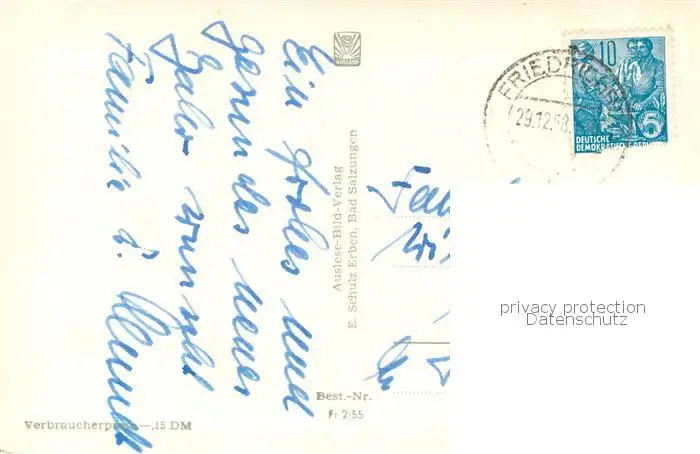 Ein frohes und
gesundes neues
Jahr wünscht
Familie
Auslese-Bild-Verlag
E. Schulz Erben, Bad Salzungen
Best.-Nr.
Fr 2/55
Verbraucherpreis —,15 DM
29.12.58
10
DEUTSCHE
DEMOKRATISCHE REPUBLIK
5
privacy protection
Datenschutz